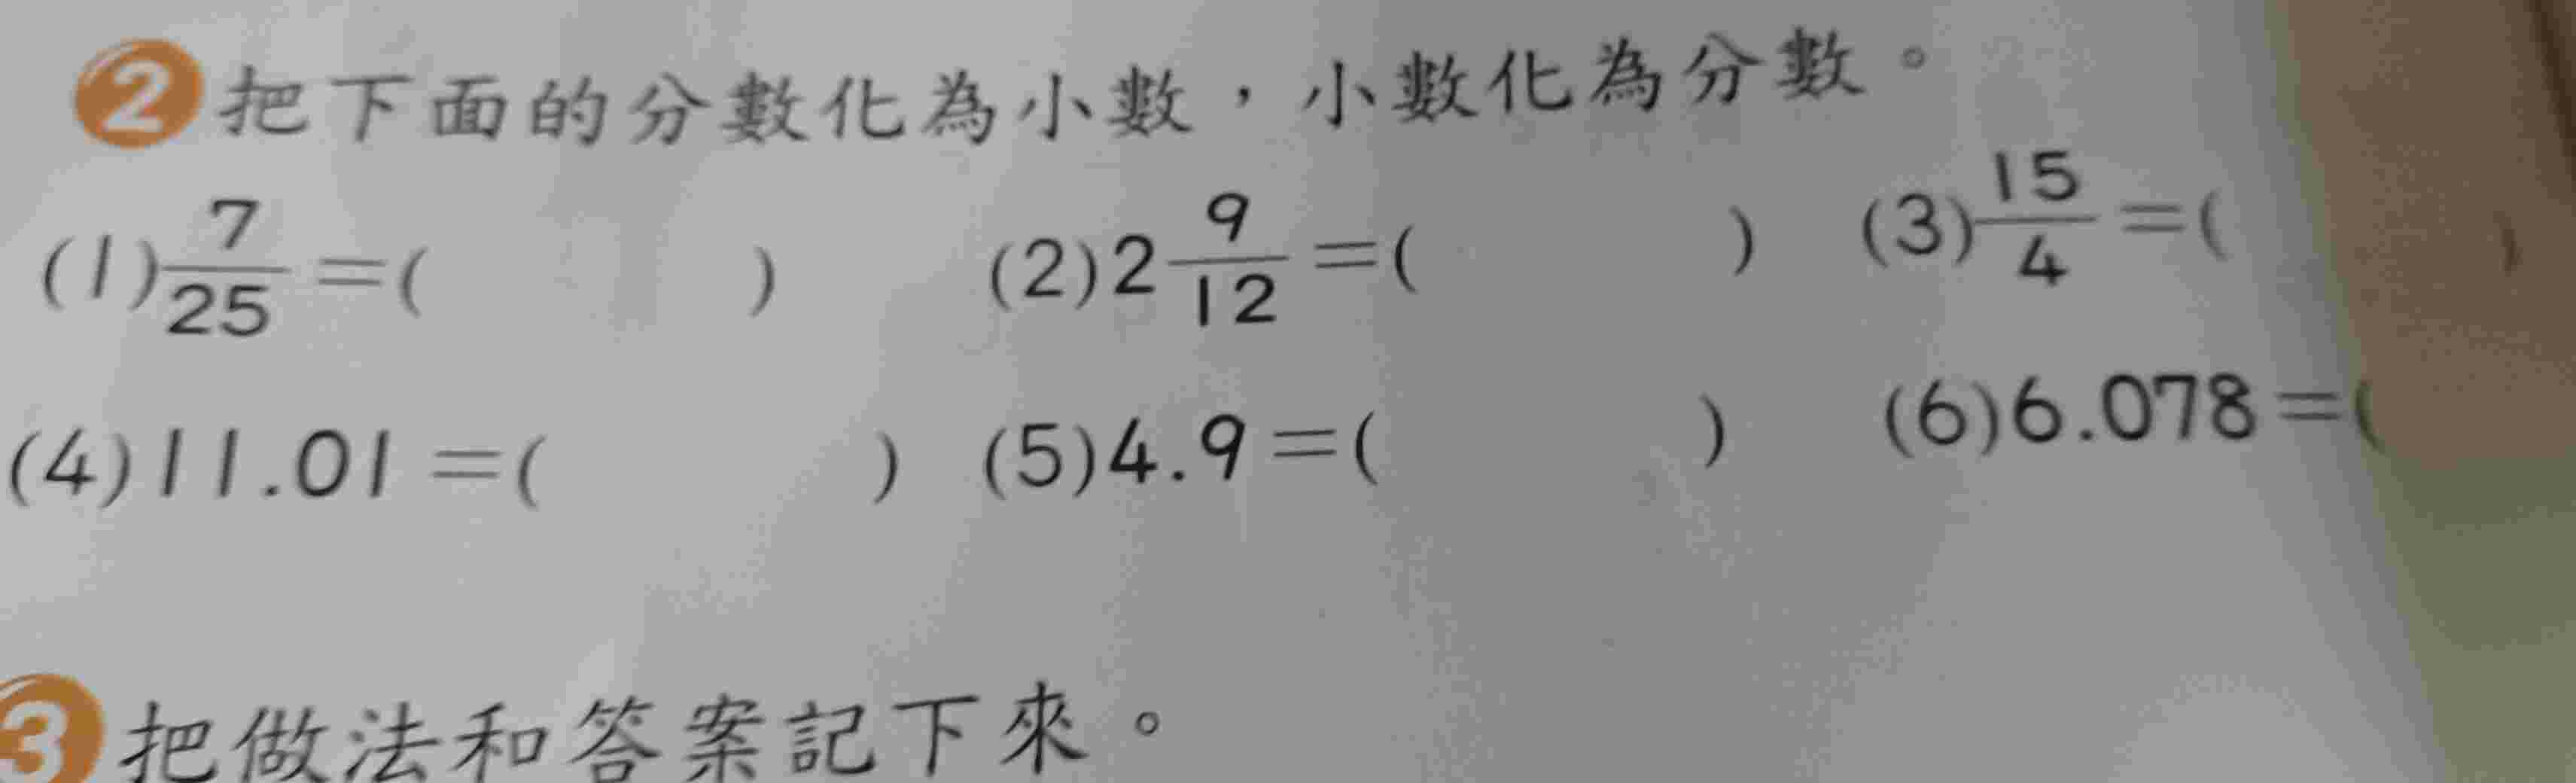 2 把下面的分數化為小數，小數化為分數。
(1) 7/25 =(　　　) (2) 2 9/12 =(　　　) (3) 15/4 =(　　　)
(4) 11.01 =(　　　) (5) 4.9 =(　　　) (6) 6.078 =(
3 把做法和答案記下來。